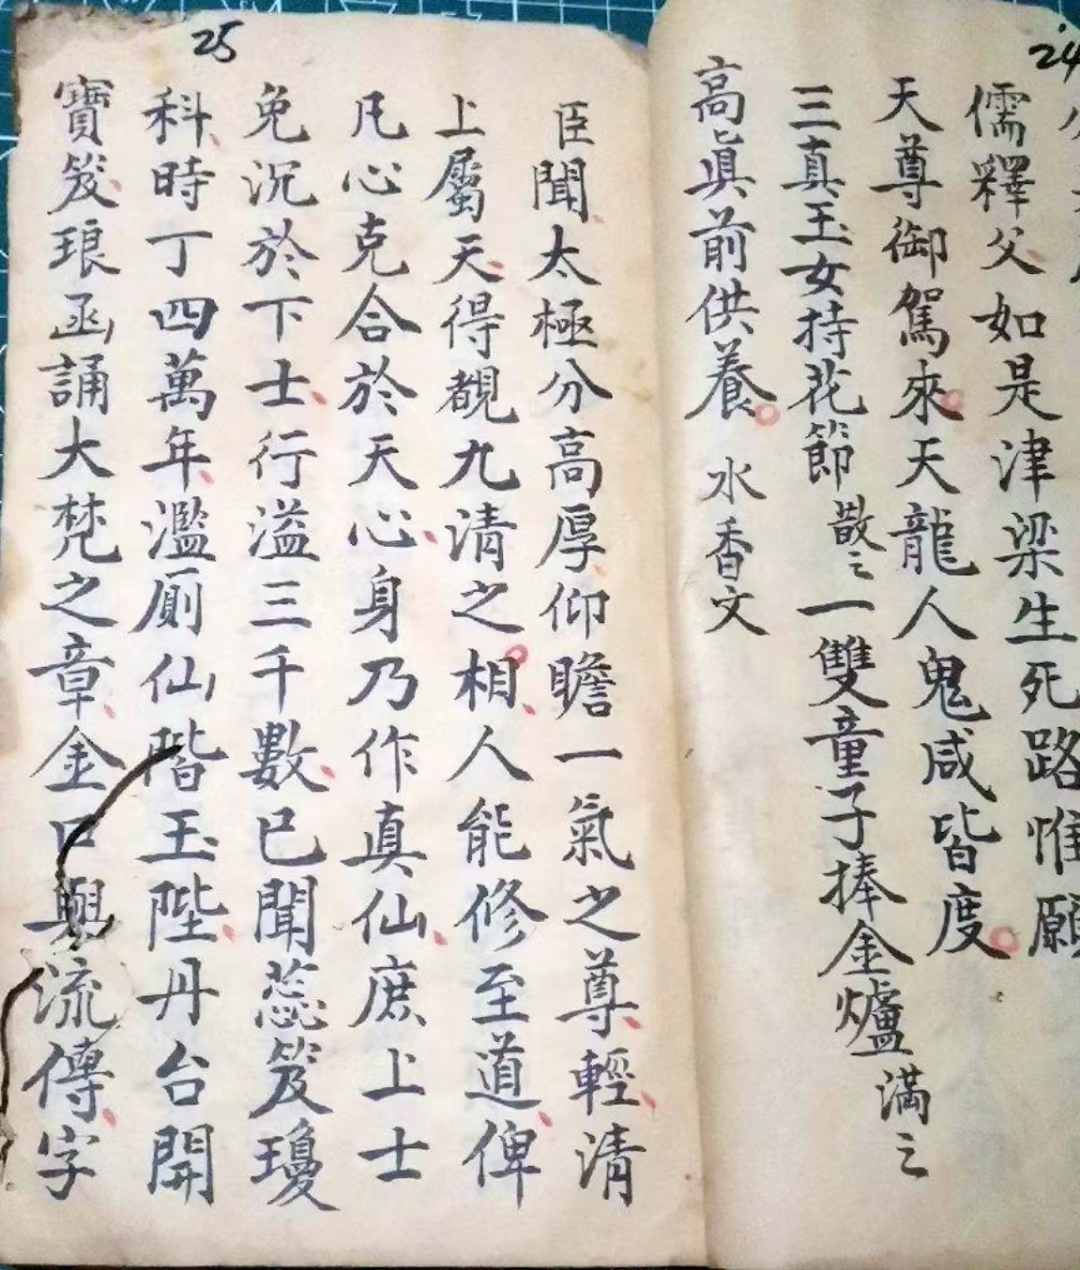 24
儒釋父如是津梁生死路惟願
天尊御駕來天龍人鬼咸皆度
三真玉女持花節散之一雙童子捧金爐滿之
高真前供養 水香文
25
臣聞太極分高厚仰瞻一氣之尊輕清
上屬天得覩九清之相人能修至道俾
凡心克合於天心身乃作真仙庶上士
免沉於下士行溢三千數已聞蕊笈瓊
科時丁四萬年濫厠仙階玉陛丹台開
寶笈琅函誦大梵之章金口與流傳字